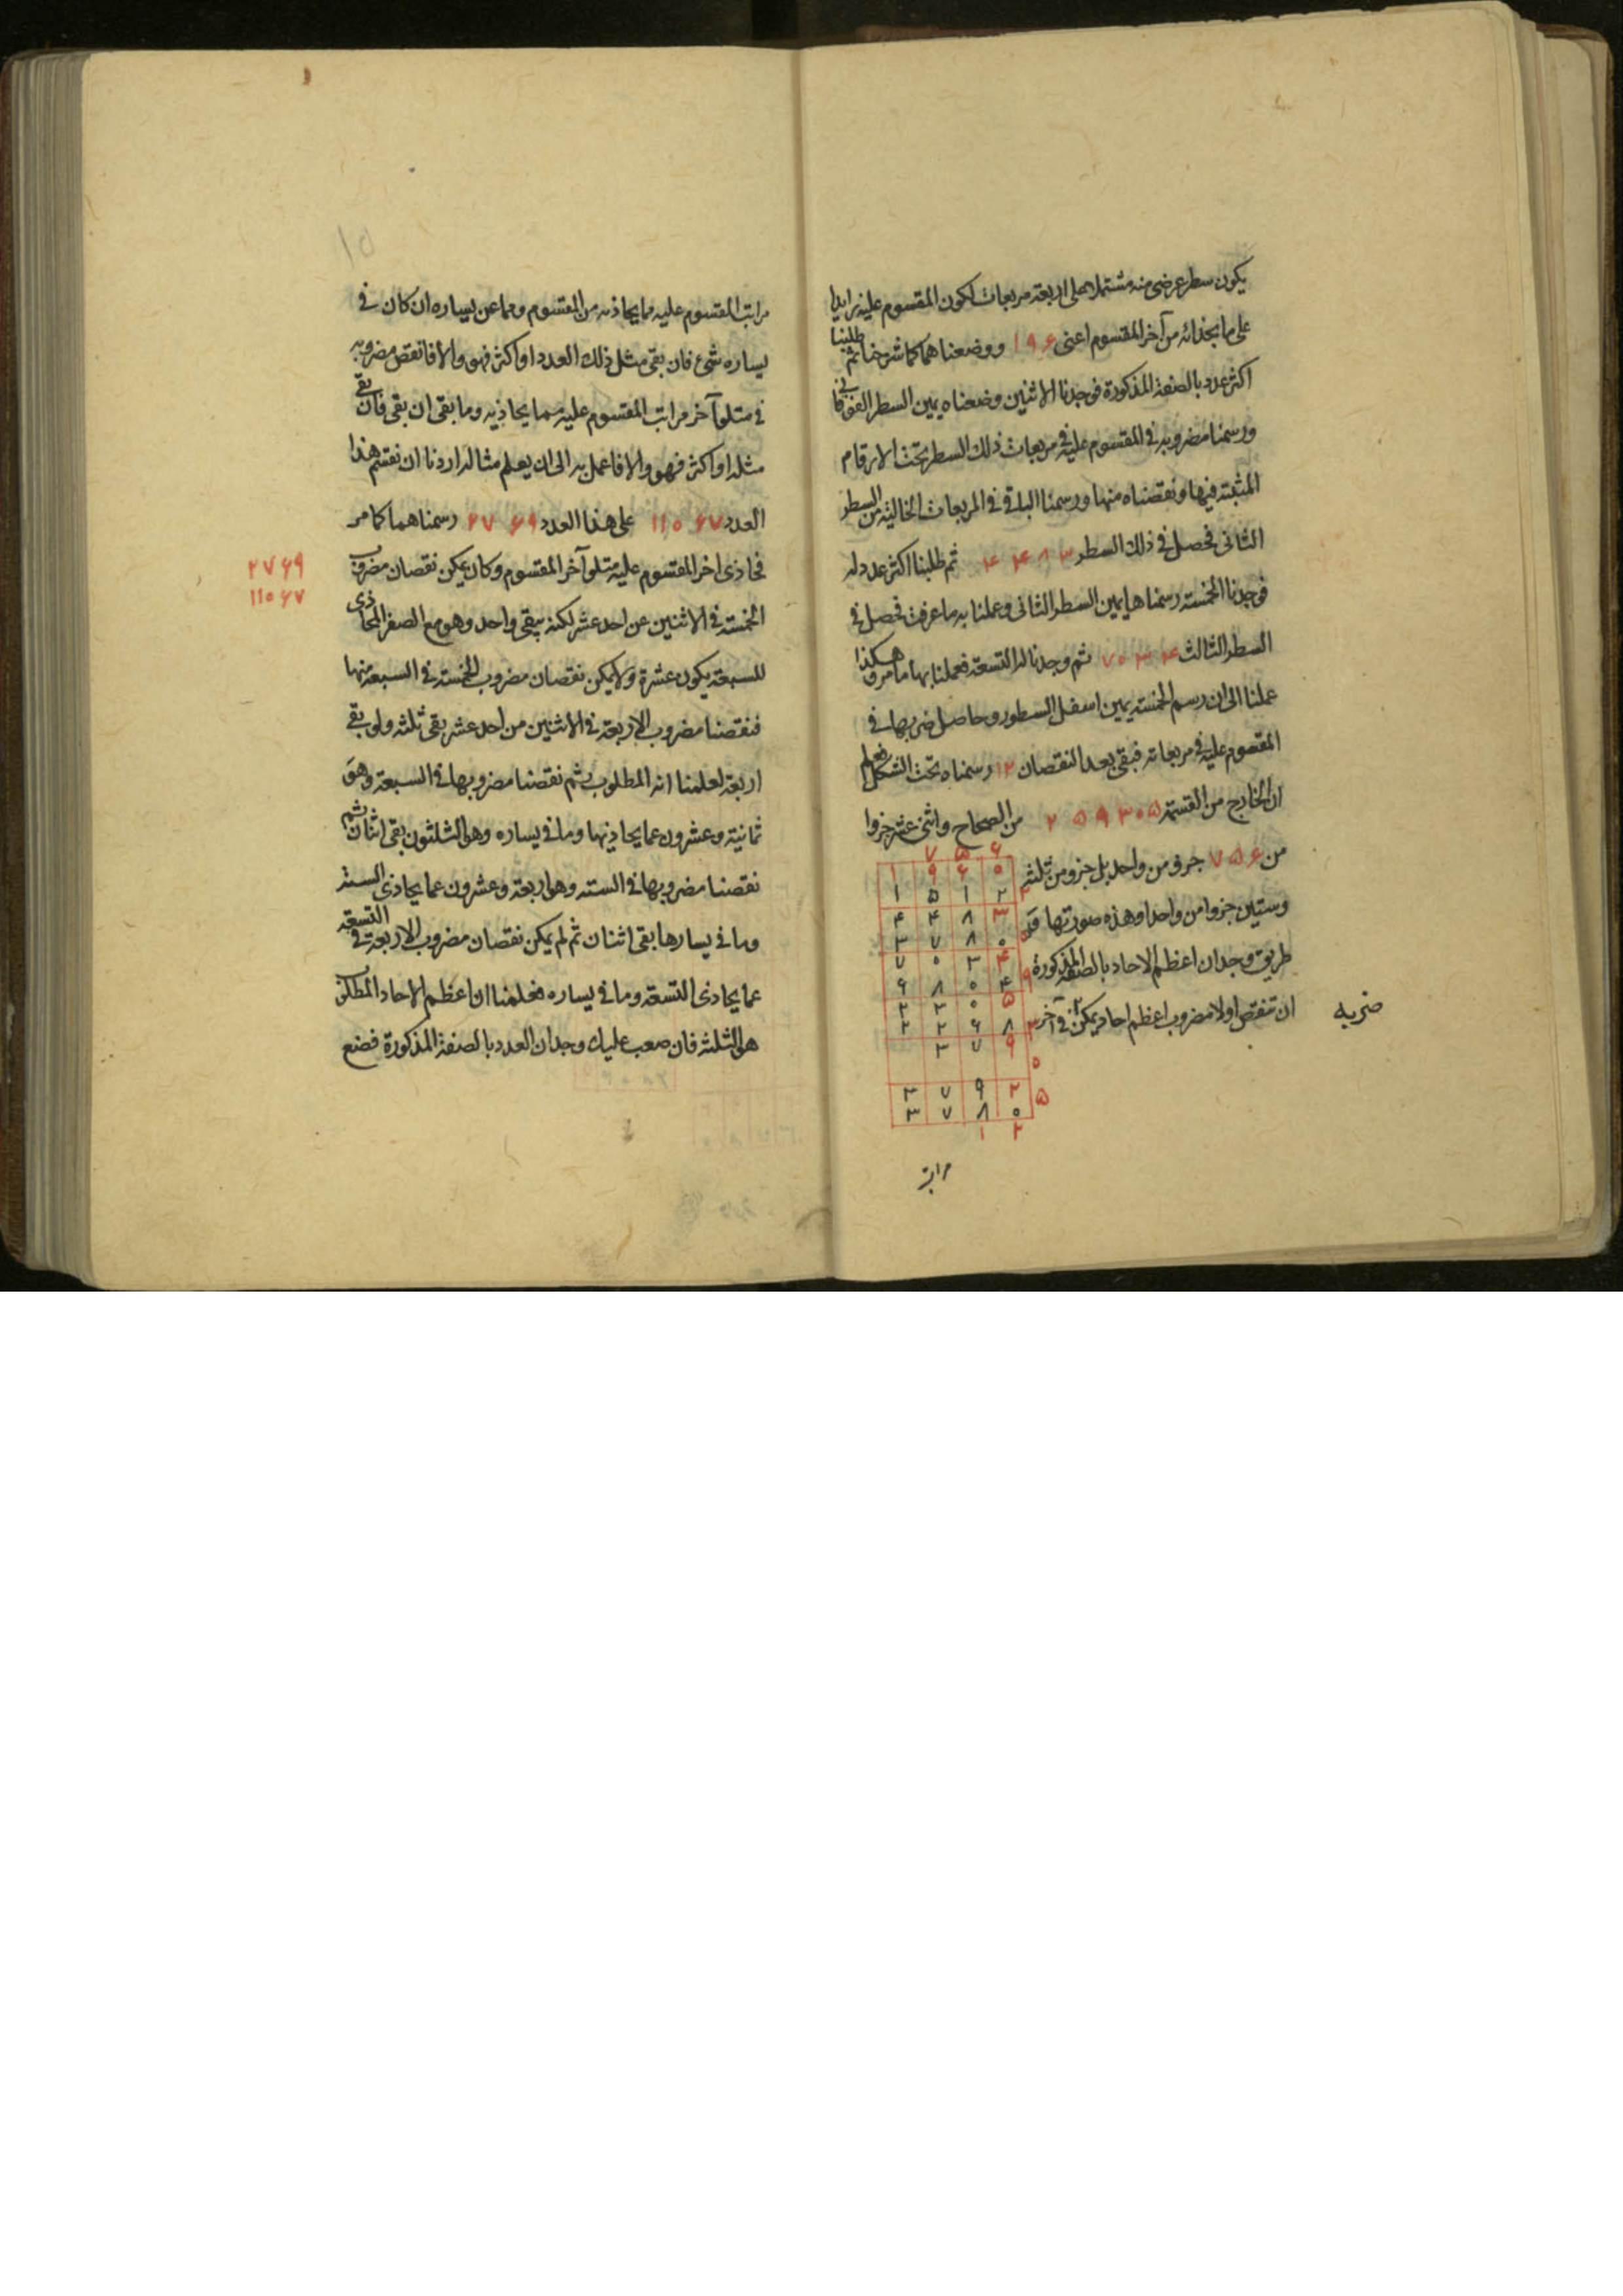 يكون سطر عرضى منه مشتملا على اربعة مربعات لكون المقسوم عليه زايدا
على ما بحذائه من آخر المقسوم اعنى ١٩۶ ووضعناهما كما شرحنا ثم طلبنا
اكثر عدد بالصفة المذكورة فوجدنا الاثنين وضعناه يمين السطر الفوقانى
ورسمنا مضروبه فى المقسوم عليه فى مربعات ذلك السطر تحت الارقام
المثبتة فيها ونقصناه منها ورسمنا الباقى فى المربعات الخالية من السطر
الثانى فحصل فى ذلك السطر ۴۴٨٣ ثم طلبنا اكثر عدد له
فوجدنا الخمسة رسمناها يمين السطر الثانى وعملنا به ما عرفت فحصل فى
السطر الثالث ٧٠٣۴ ثم وجدنا له التسعة فعملنا بها ما مر وهكذا
عملنا الى ان رسم الخمسة يمين اسفل السطور وحاصل ضربها فى
المقسوم عليه فى مربعاته فبقى بعد النقصان ١٢ رسمناه تحت الشكل فعلم
ان الخارج من القسمة ٢۵٩٣٠۵ من الصحاح واثنى عشر جزوا
من ٧۵۶ جزو من واحد بل جزو من ثلثة
وستين جزوا من واحد وهذه صورتها
طريق وجدان اعظم الاحاد بالصفة المذكورة
ان تنقص اولا مضروب اعظم احاد يمكن فى آخر
ضربه
٧ ۵ ۶
١ ٩ ۶ ٠
١ ۵ ١ ٢ ٢
۴ ۴ ٨ ٣
٣ ٧ ٨ ٠ ۵
٧ ٠ ٣ ۴
۶ ٨ ٠ ۴ ٩
٢ ٣ ٠ ۵
٢ ٢ ۶ ٨ ٣
٣ ٧ ٩
٠
٣ ٧ ٩ ٢ ۵
٣ ٧ ٨ ٠
١ ٢
مراتب
١٥
مراتب المقسوم عليه مما يحاذيه من المقسوم ومما عن يساره ان كان فى
يساره شئ فان بقى مثل ذلك العدد او اكثر فهو والا فانقص مضروبه
فى متلو آخر مراتب المقسوم عليه مما يحاذيه وما بقى ان بقى فان بقى
مثله او اكثر فهو والا فاعمل به الى ان يعلم مثاله اردنا ان نقسم هذا
العدد ١١٠۶٧ على هذا العدد ٢٧۶٩ رسمناهما كما مر
فحاذى آخر المقسوم عليه متلو آخر المقسوم وكان يمكن نقصان مضروب
الخمسة فى الاثنين عن احد عشر لكنه يبقى واحد وهو مع الصفر المحاذى
للسبعة يكون عشرة ولا يمكن نقصان مضروب الخمسة فى السبعة منها
فنقصنا مضروب الاربعة فى الاثنين من احد عشر بقى ثلثة ولو بقى
اربعة لعلمنا انه المطلوب ثم نقصنا مضروبها فى السبعة وهو
ثمانية وعشرون عما يحاذيها وما فى يساره وهو الثلثون بقى اثنان ثم
نقصنا مضروبها فى الستة وهو اربعة وعشرون عما يحاذى الستة
وما فى يسارها بقى اثنان ثم لم يمكن نقصان مضروب الاربعة فى التسعة
عما يحاذى التسعة وما فى يساره فعلمنا ان اعظم الاحاد المطلوب
هو الثلثة فان صعب عليك وجدان العدد بالصفة المذكورة فضع
٢٧۶٩
١١٠۶٧